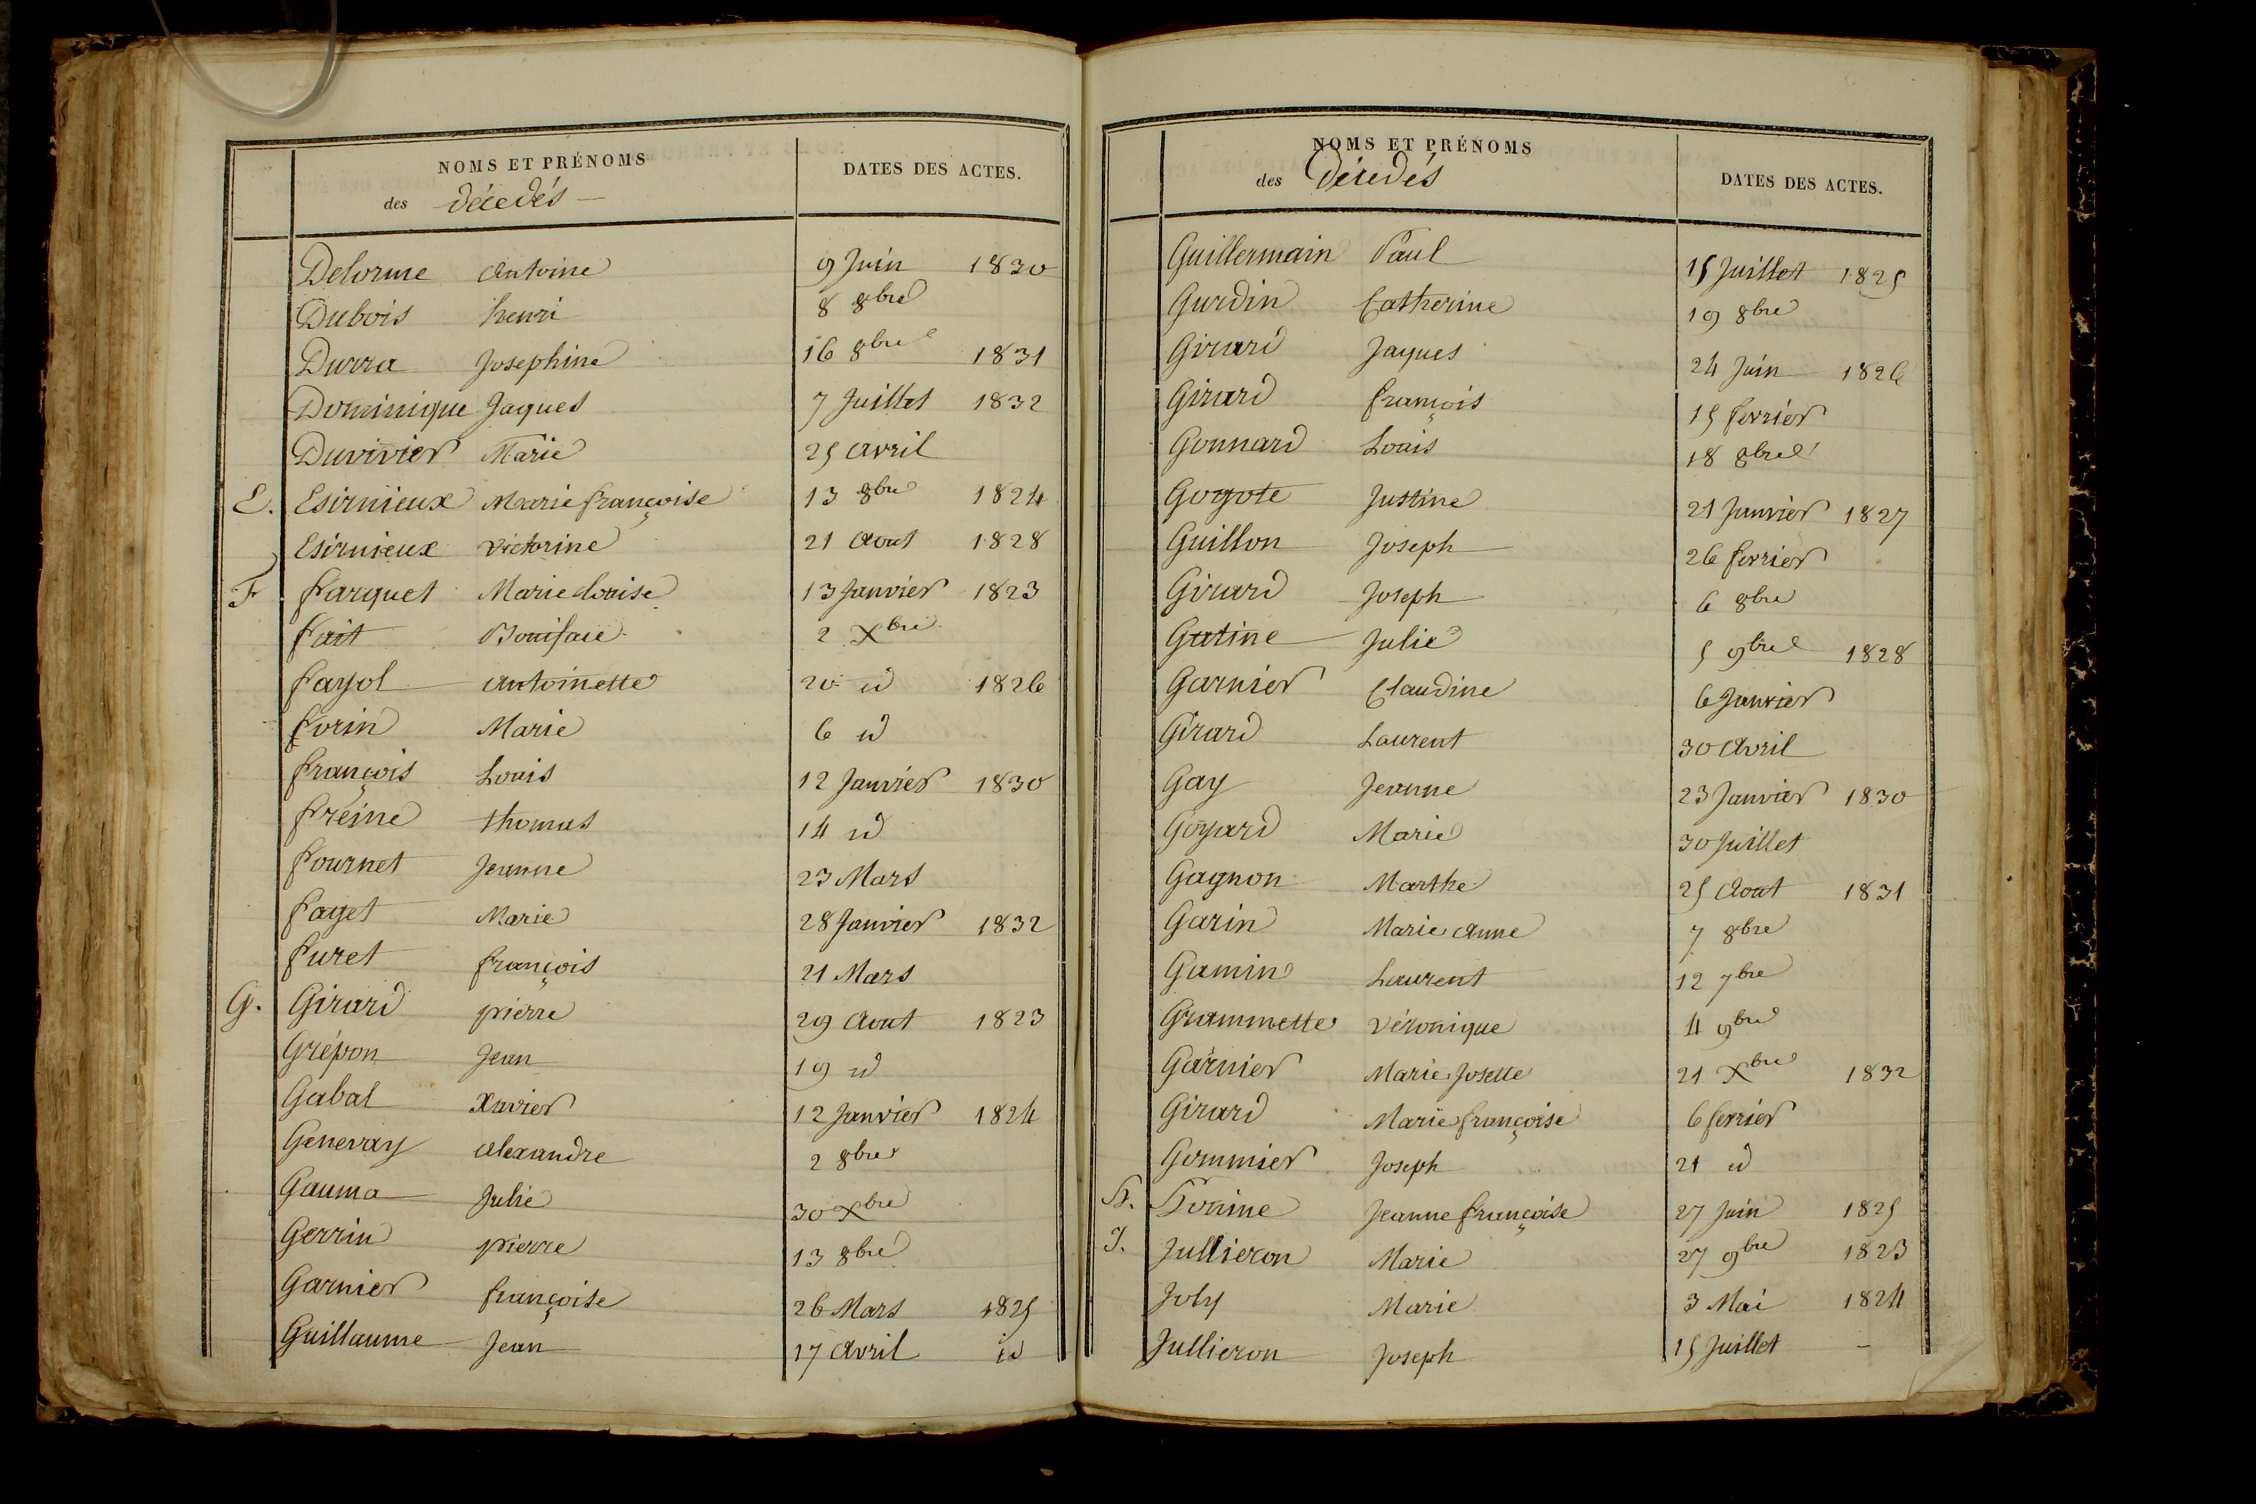 NOMS ET PRÉNOMS
des décedés
DATES DES ACTES.
Delorme Antoine 9 Juin 1830
Dubois henri 8 8bre
Durra Josephine 16 8bre 1831
Dominique Jaques 7 Juillet 1832
Duvivier Marie 25 Avril
E. Esirnieux Marie françoise 13 8bre 1824
Esirnieux victorine 21 Aout 1828
F farquet Marie Louise 13 Janvier 1823
fait Bonifaie 2 Xbre
fayol Antoinette 20 id 1826
forin Marie 6 id
françois Louis 12 Janvier 1830
freine thomas 14 id
fournet Jeanne 23 Mars
fayet Marie 28 Janvier 1832
furet françois 21 Mars
G. Girard pierre 29 Aout 1823
Grépon Jean 19 id
Gabal Xavier 12 Janvier 1824
Genevay Alexandre 2 8bre
Gauma Julie 30 Xbre
Gerrin pierre 13 8bre
Garnier françoise 26 Mars 1825
Guillaume Jean 17 Avril id
NOMS ET PRÉNOMS
des décedés
DATES DES ACTES.
Guillermain Paul 15 Juillet 1825
Gurdin Catherine 19 8bre
Girard Jaques 24 Juin 1826
Girard françois 15 fevrier
Gonnard Louis 18 8bre
Gogote Justine 21 Janvier 1827
Guillon Joseph 26 fevrier
Girard Joseph 6 8bre
Gatine Julie 5 9bre 1828
Garnier Claudine 6 Janvier
Girard Laurent 30 Avril
Gay Jeanne 23 Janvier 1830
Goyard Marie 30 Juillet
Gagnon Marthe 25 Aout 1831
Garin Marie Anne 7 8bre
Gamin Laurent 12 7bre
Grammette véronique 4 9bre
Garnier Marie Josette 21 Xbre 1832
Girard Marie françoise 6 fevrier
Gommier Joseph 21 id
H. Honine Jeanne françoise 27 Juin 1825
J. Jullieron Marie 27 9bre 1823
Joly Marie 3 Mai 1824
Jullieron Joseph 15 Juillet –